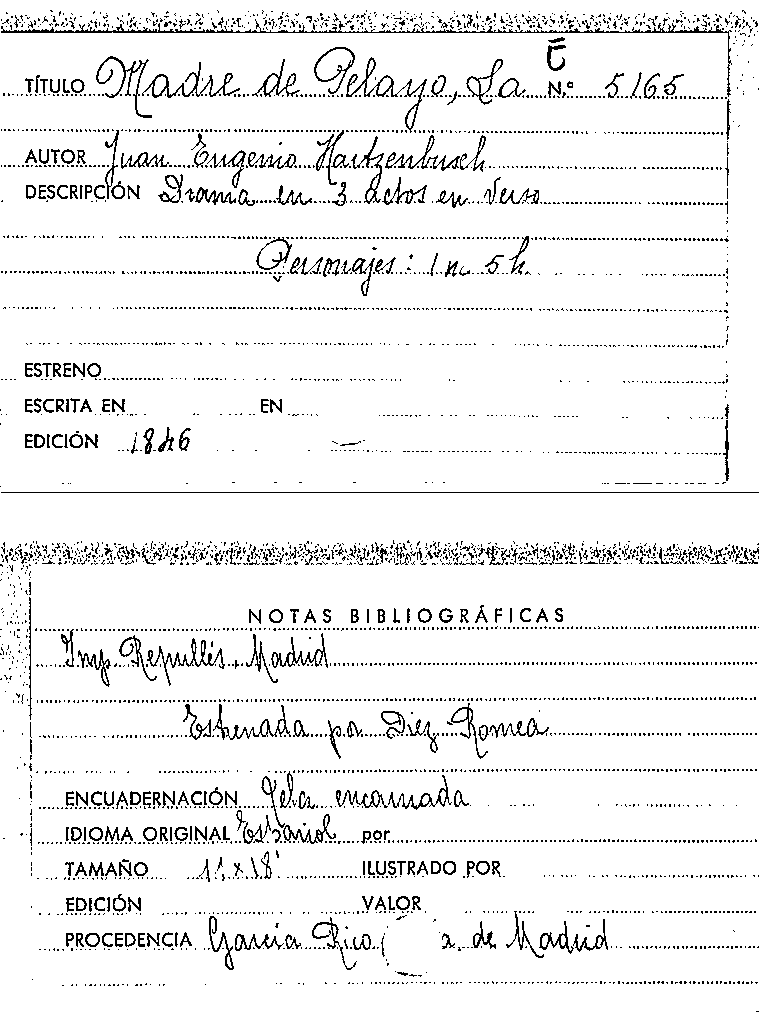 Ē
TÍTULO Madre de Pelayo, La N.º 5165
AUTOR Juan Eugenio Hartzenbusch
DESCRIPCIÓN Drama en 3 actos en verso
Personajes: 1 m. 5 h.
ESTRENO
ESCRITA EN EN
EDICIÓN 1846
NOTAS BIBLIOGRÁFICAS
Imp. Repullés. Madrid
Estrenada por Diez Romea
ENCUADERNACIÓN Tela encarnada
IDIOMA ORIGINAL Español por
TAMAÑO 11 x 18' ILUSTRADO POR
EDICIÓN VALOR
PROCEDENCIA García Rico, de Madrid